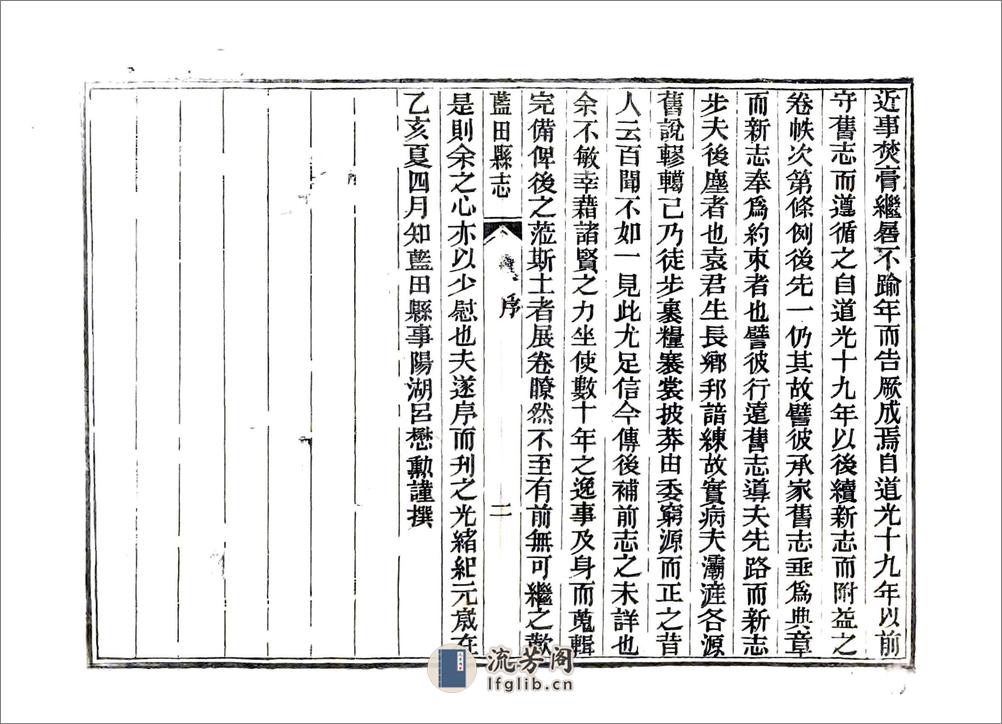 近事焚膏繼晷不踰年而告厥成焉自道光十九年以前
守舊志而遵循之自道光十九年以後續新志而附益之
卷帙次第條例後先一仍其故譬彼承家舊志垂爲典章
而新志奉爲約束者也譬彼行遠舊志導夫先路而新志
步夫後塵者也袁君生長鄉邦諳練故實病夫灞滻各源
舊說轇轕己乃徒步裹糧褰裳披莽由委窮源而正之昔
人云百聞不如一見此尤足信今傳後補前志之未詳也
余不敏幸藉諸賢之力坐使數十年之逸事及身而蒐輯
完備俾後之蒞斯土者展卷瞭然不至有前無可繼之歎
藍田縣志
序
二
是則余之心亦以少慰也夫遂序而刊之光緒紀元歲在
乙亥夏四月知藍田縣事陽湖呂懋勳謹撰
流芳阁
lfglib.cn